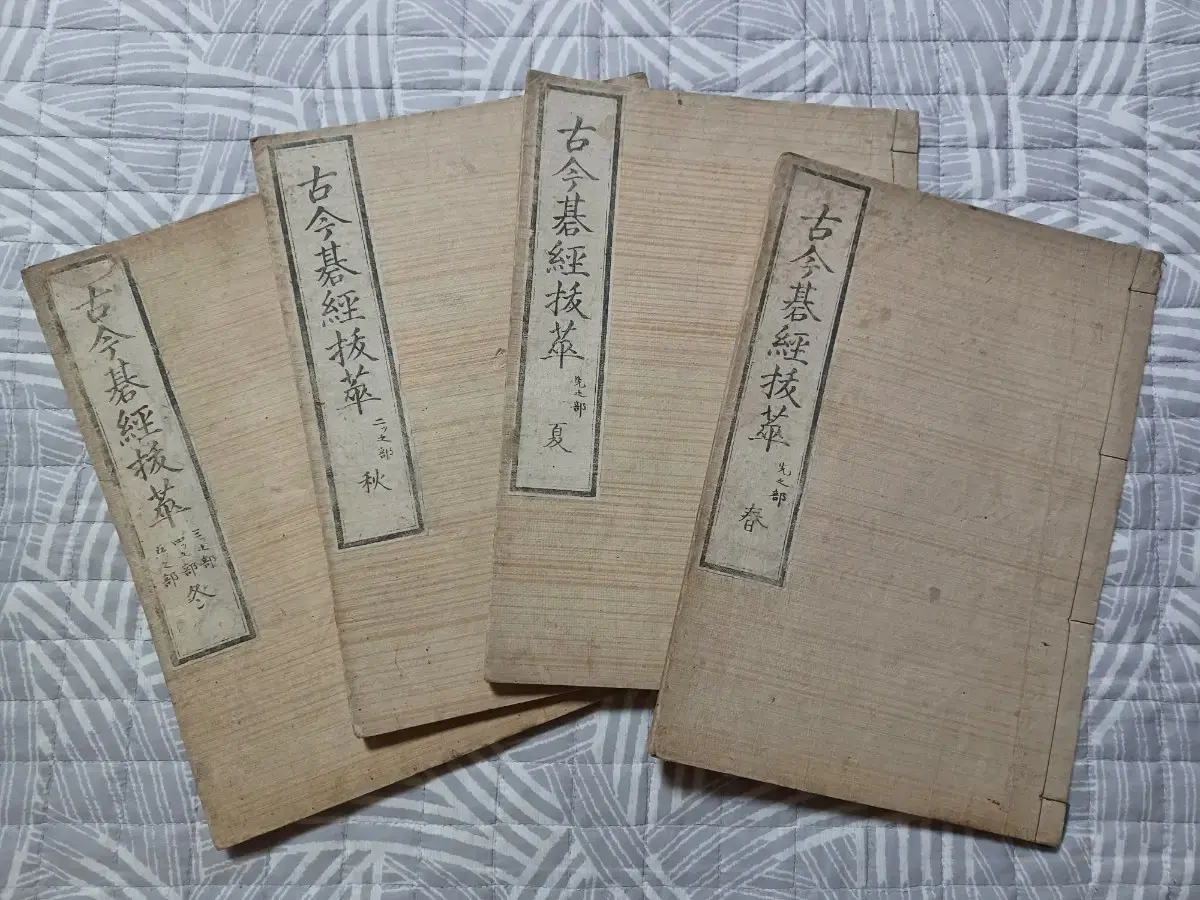 古今碁經拔萃
先之部
春
古今碁經拔萃
先之部
夏
古今碁經拔萃
二ツ之部
秋
古今碁經拔萃
三ツ之部
四ツ之部
五ツ之部
冬